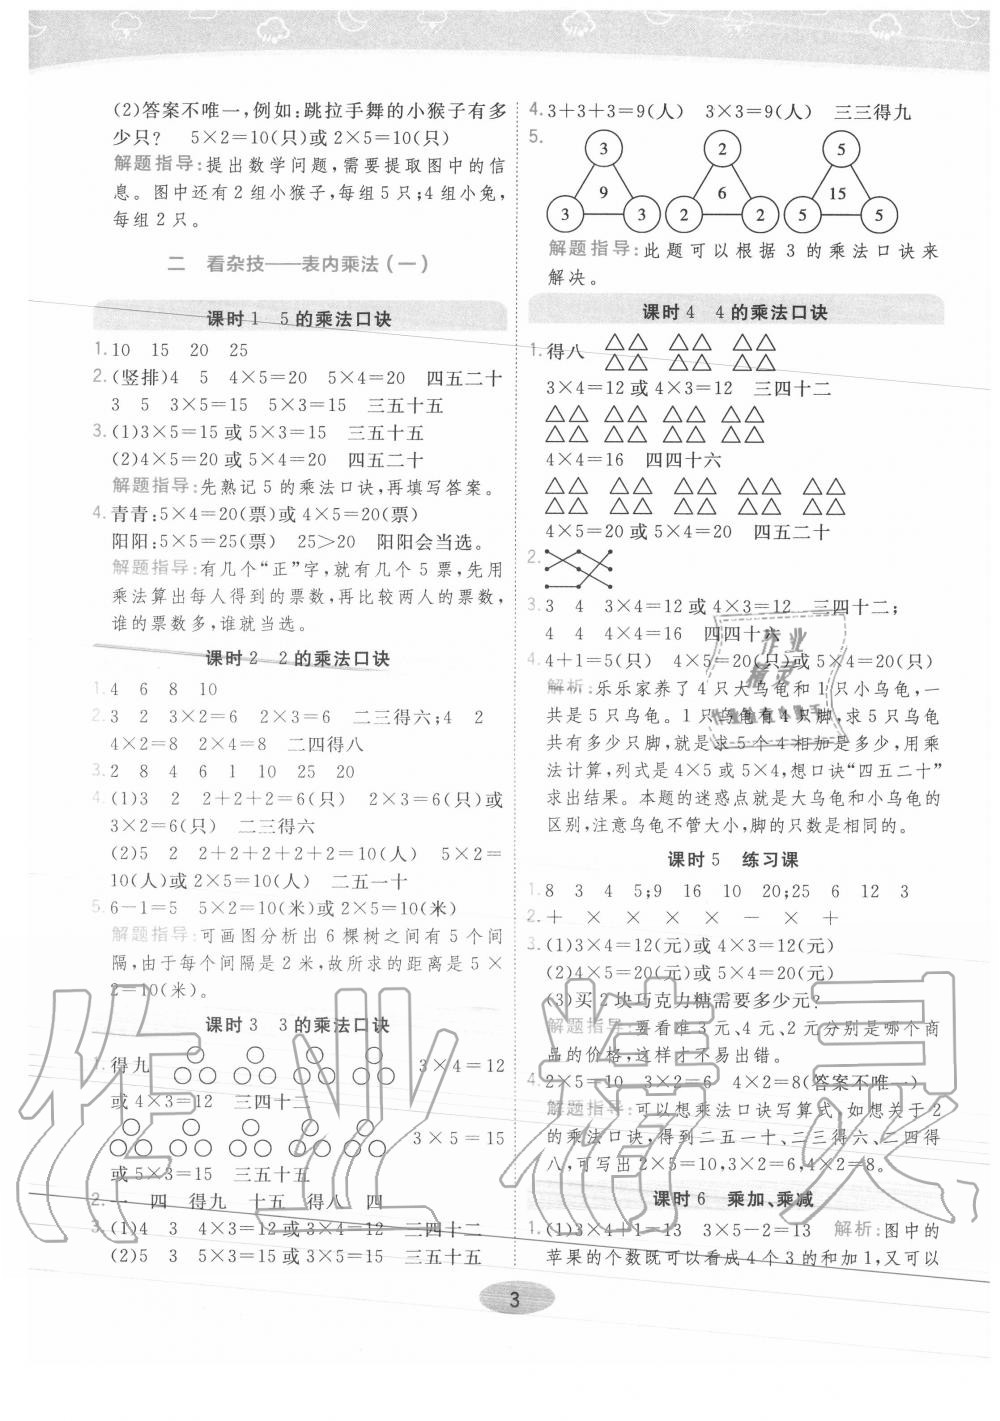 (2)答案不唯一,例如:跳拉手舞的小猴子有多
少只? 5×2=10(只)或2×5=10(只)
解题指导:提出数学问题,需要提取图中的信
息。图中还有2组小猴子,每组5只;4组小兔,
每组2只。
二 看杂技——表内乘法(一)
课时1 5的乘法口诀
1. 10 15 20 25
2. (竖排)4 5 4×5=20 5×4=20 四五二十
3 5 3×5=15 5×3=15 三五十五
3. (1)3×5=15或5×3=15 三五十五
(2)4×5=20或5×4=20 四五二十
解题指导:先熟记5的乘法口诀,再填写答案。
4. 青青:5×4=20(票)或4×5=20(票)
阳阳:5×5=25(票) 25>20 阳阳会当选。
解题指导:有几个“正”字,就有几个5票,先用
乘法算出每人得到的票数,再比较两人的票数,
谁的票数多,谁就当选。
课时2 2的乘法口诀
1. 4 6 8 10
2. 3 2 3×2=6 2×3=6 二三得六;4 2
4×2=8 2×4=8 二四得八
3. 2 8 4 6 1 10 25 20
4. (1)3 2 2+2+2=6(只) 2×3=6(只)或
3×2=6(只) 二三得六
(2)5 2 2+2+2+2+2=10(人) 5×2=
10(人)或2×5=10(人) 二五一十
5. 6-1=5 5×2=10(米)或2×5=10(米)
解题指导:可画图分析出6棵树之间有5个间
隔,由于每个间隔是2米,故所求的距离是5×
2=10(米)。
课时3 3的乘法口诀
1. 得九 3×4=12
或4×3=12 三四十二
3×5=15
或5×3=15 三五十五
2. 一 四 得九 十五 得八 四
3. (1)4 3 4×3=12或3×4=12 三四十二
(2)5 3 5×3=15或3×5=15 三五十五
4. 3+3+3=9(人) 3×3=9(人) 三三得九
5.
3 2 5
9 6 15
3 3 2 2 5 5
解题指导:此题可以根据3的乘法口诀来
解决。
课时4 4的乘法口诀
1. 得八
3×4=12或4×3=12 三四十二
4×4=16 四四十六
4×5=20或5×4=20 四五二十
2.
3. 3 4 3×4=12或4×3=12 三四十二;
4 4 4×4=16 四四十六
4. 4+1=5(只) 4×5=20(只)或5×4=20(只)
解析:乐乐家养了4只大乌龟和1只小乌龟,一
共是5只乌龟。1只乌龟有4只脚,求5只乌龟
共有多少只脚,就是求5个4相加是多少,用乘
法计算,列式是4×5或5×4,想口诀“四五二十”
求出结果。本题的迷惑点就是大乌龟和小乌龟的
区别,注意乌龟不管大小,脚的只数是相同的。
课时5 练习课
1. 8 3 4 5;9 16 10 20;25 6 12 3
2. + × × × × - × +
3. (1)3×4=12(元)或4×3=12(元)
(2)4×5=20(元)或5×4=20(元)
(3)买2块巧克力糖需要多少元?
解题指导:要看准3元、4元、2元分别是哪个商
品的价格,这样才不易出错。
4. 2×5=10 3×2=6 4×2=8(答案不唯一)
解题指导:可以想乘法口诀写算式,如想关于2
的乘法口诀,得到二五一十、二三得六、二四得
八,可写出2×5=10,3×2=6,4×2=8。
课时6 乘加、乘减
1. (1)3×4+1=13 3×5-2=13 解析:图中的
苹果的个数既可以看成4个3的和加1,又可以
3
作业精灵
作业
精灵